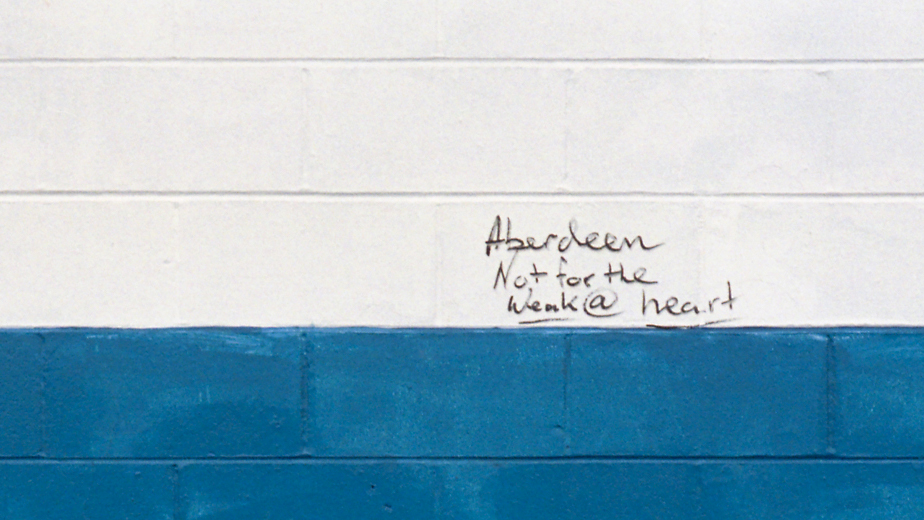 Aberdeen
Not for the
Weak @ heart